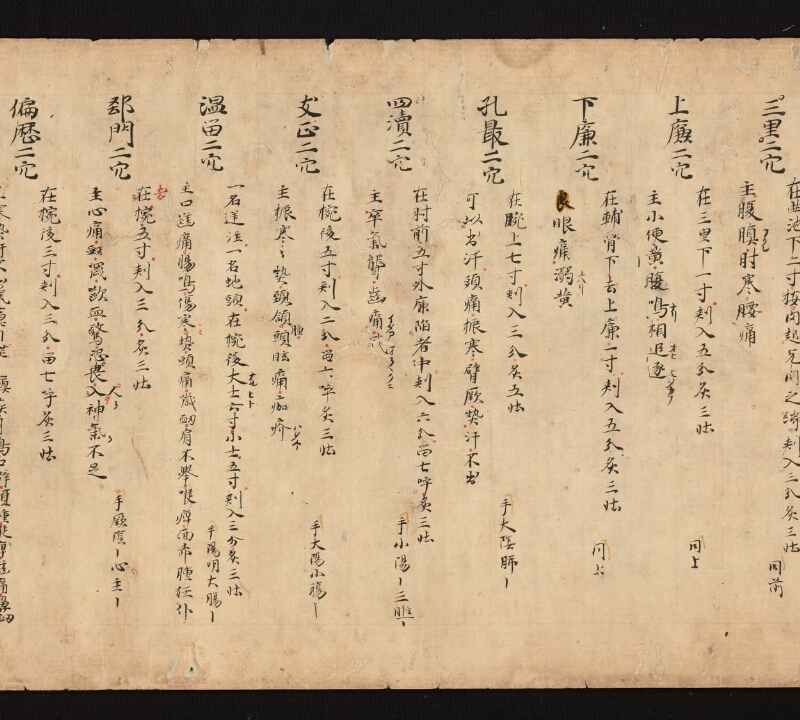 三里二穴
在曲池下二寸按肉起兌肉之 刾入三分灸三壮 同前
主腹䐜肘寒腰痛
上廉二穴
在三里下一寸刾入五分灸三壮 同上
主小便黄腹鳴相追逐
下廉二穴
在輔骨下去上廉一寸刾入五分灸三壮 同上
眼痛溺黄
孔最二穴
在腕上七寸刾入三分灸五壮 手大陰肺
可以出汗頭痛振寒臂厥熱汗不出
四瀆二穴
在肘前五寸外廉陷者中刾入六分留七呼灸三壮 手小陽三膲
主卒氣聾歯痛
支正二穴
在椀後五寸刾入二分留六呼灸三壮 手大陽小膓
主振寒熱頸頷腫頭眩痛痂疥
温留二穴
一名逆注一名地頭在椀後大士六寸小士五寸刾入三分灸三壮 手陽明大腸
主口喎痛腸鳴傷寒熱頭痛衂肩不舉喉痺面赤腫狂仆
郄門二穴
在椀五寸刾入三分灸三壮 手厥陰心主
主心痛衂嘔血驚恐畏人神氣不足
偏歴二穴
在椀後三寸刾入三分留七呼灸三壮